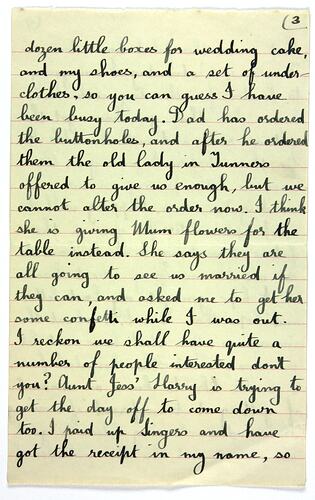 (3
dozen little boxes for wedding cake,
and my shoes, and a set of under-
clothes, so you can guess I have
been busy today. Dad has ordered
the buttonholes, and after he ordered
them the old lady in Tunners
offered to give us enough, but we
cannot alter the order now. I think
she is giving Mum flowers for the
table instead. She says they are
all going to see us married if
they can, and asked me to get her
some confetti while I was out.
I reckon we shall have quite a
number of people interested don't
you? Aunt Jess' Harry is trying to
get the day off to come down
too. I paid up Singers and have
got the receipt in my name, so